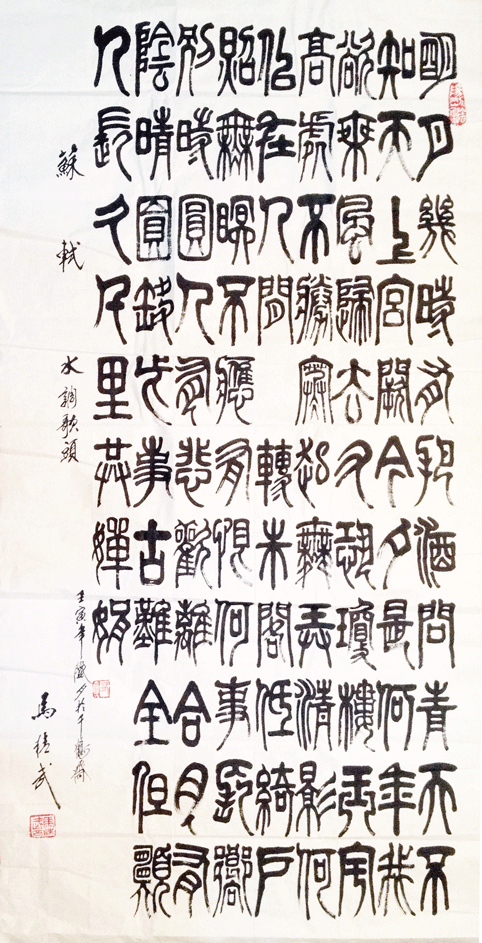 明月幾時有把酒問青天不
知天上宮闕今夕是何年我
欲乘風歸去又恐瓊樓玉宇
高處不勝寒起舞弄清影何
似在人間轉朱閣低綺戶
照無眠不應有恨何事長嚮
別時圓人有悲歡離合月有
陰晴圓缺此事古難全但願
人長久千里共嬋娟
蘇軾水調歌頭
壬寅年
馬武